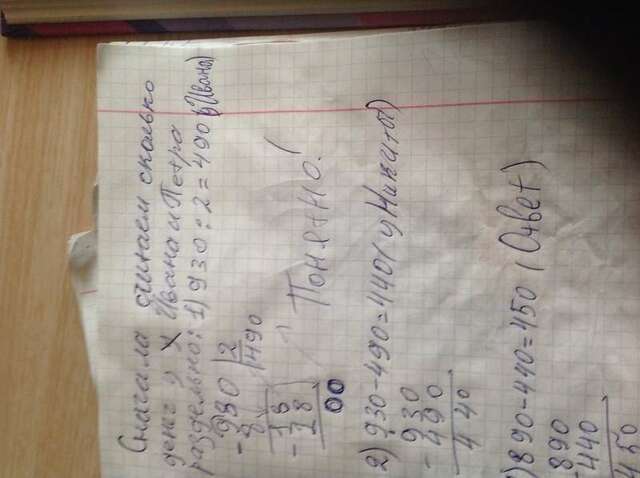 Сначала считаем сколько
денег у Х Ивана и Петра
раздельно: 1) 930 : 2 = 490 (у Ивана)
930 | 2
- 8 | 490
18
- 18
00
Понятно!
2) 930 - 490 = 440 (у Никиты)
930
- 490
440
) 890 - 440 = 450 (Ответ)
890
440
450